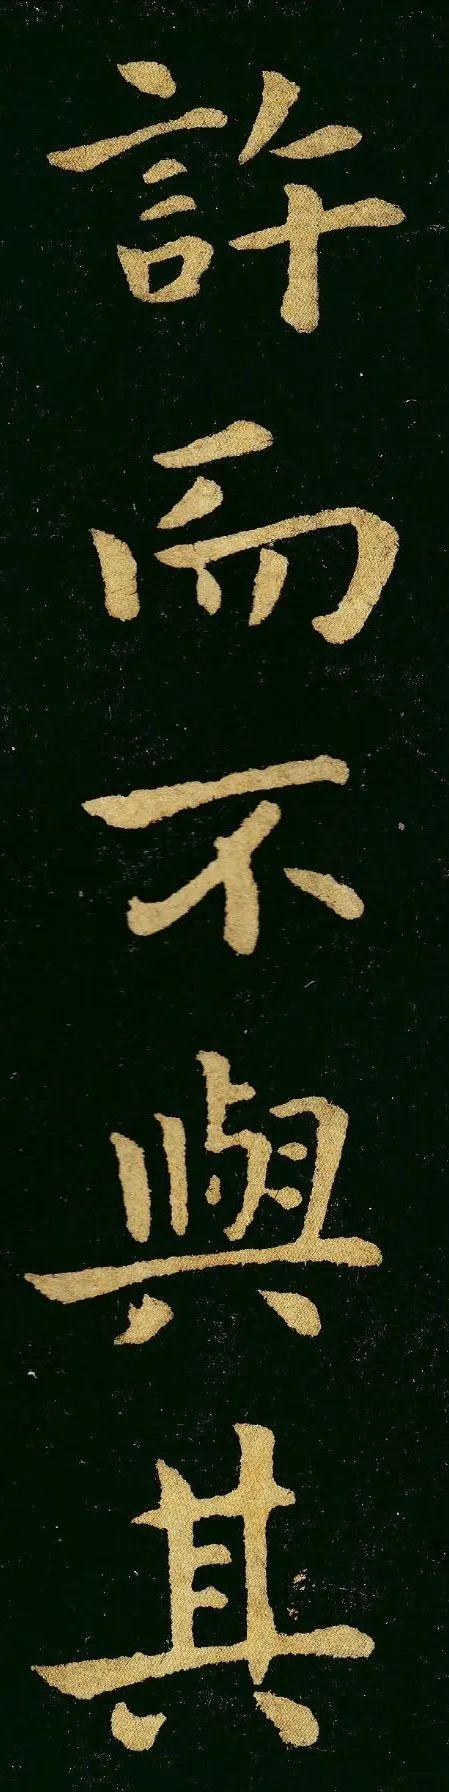 許而不與其